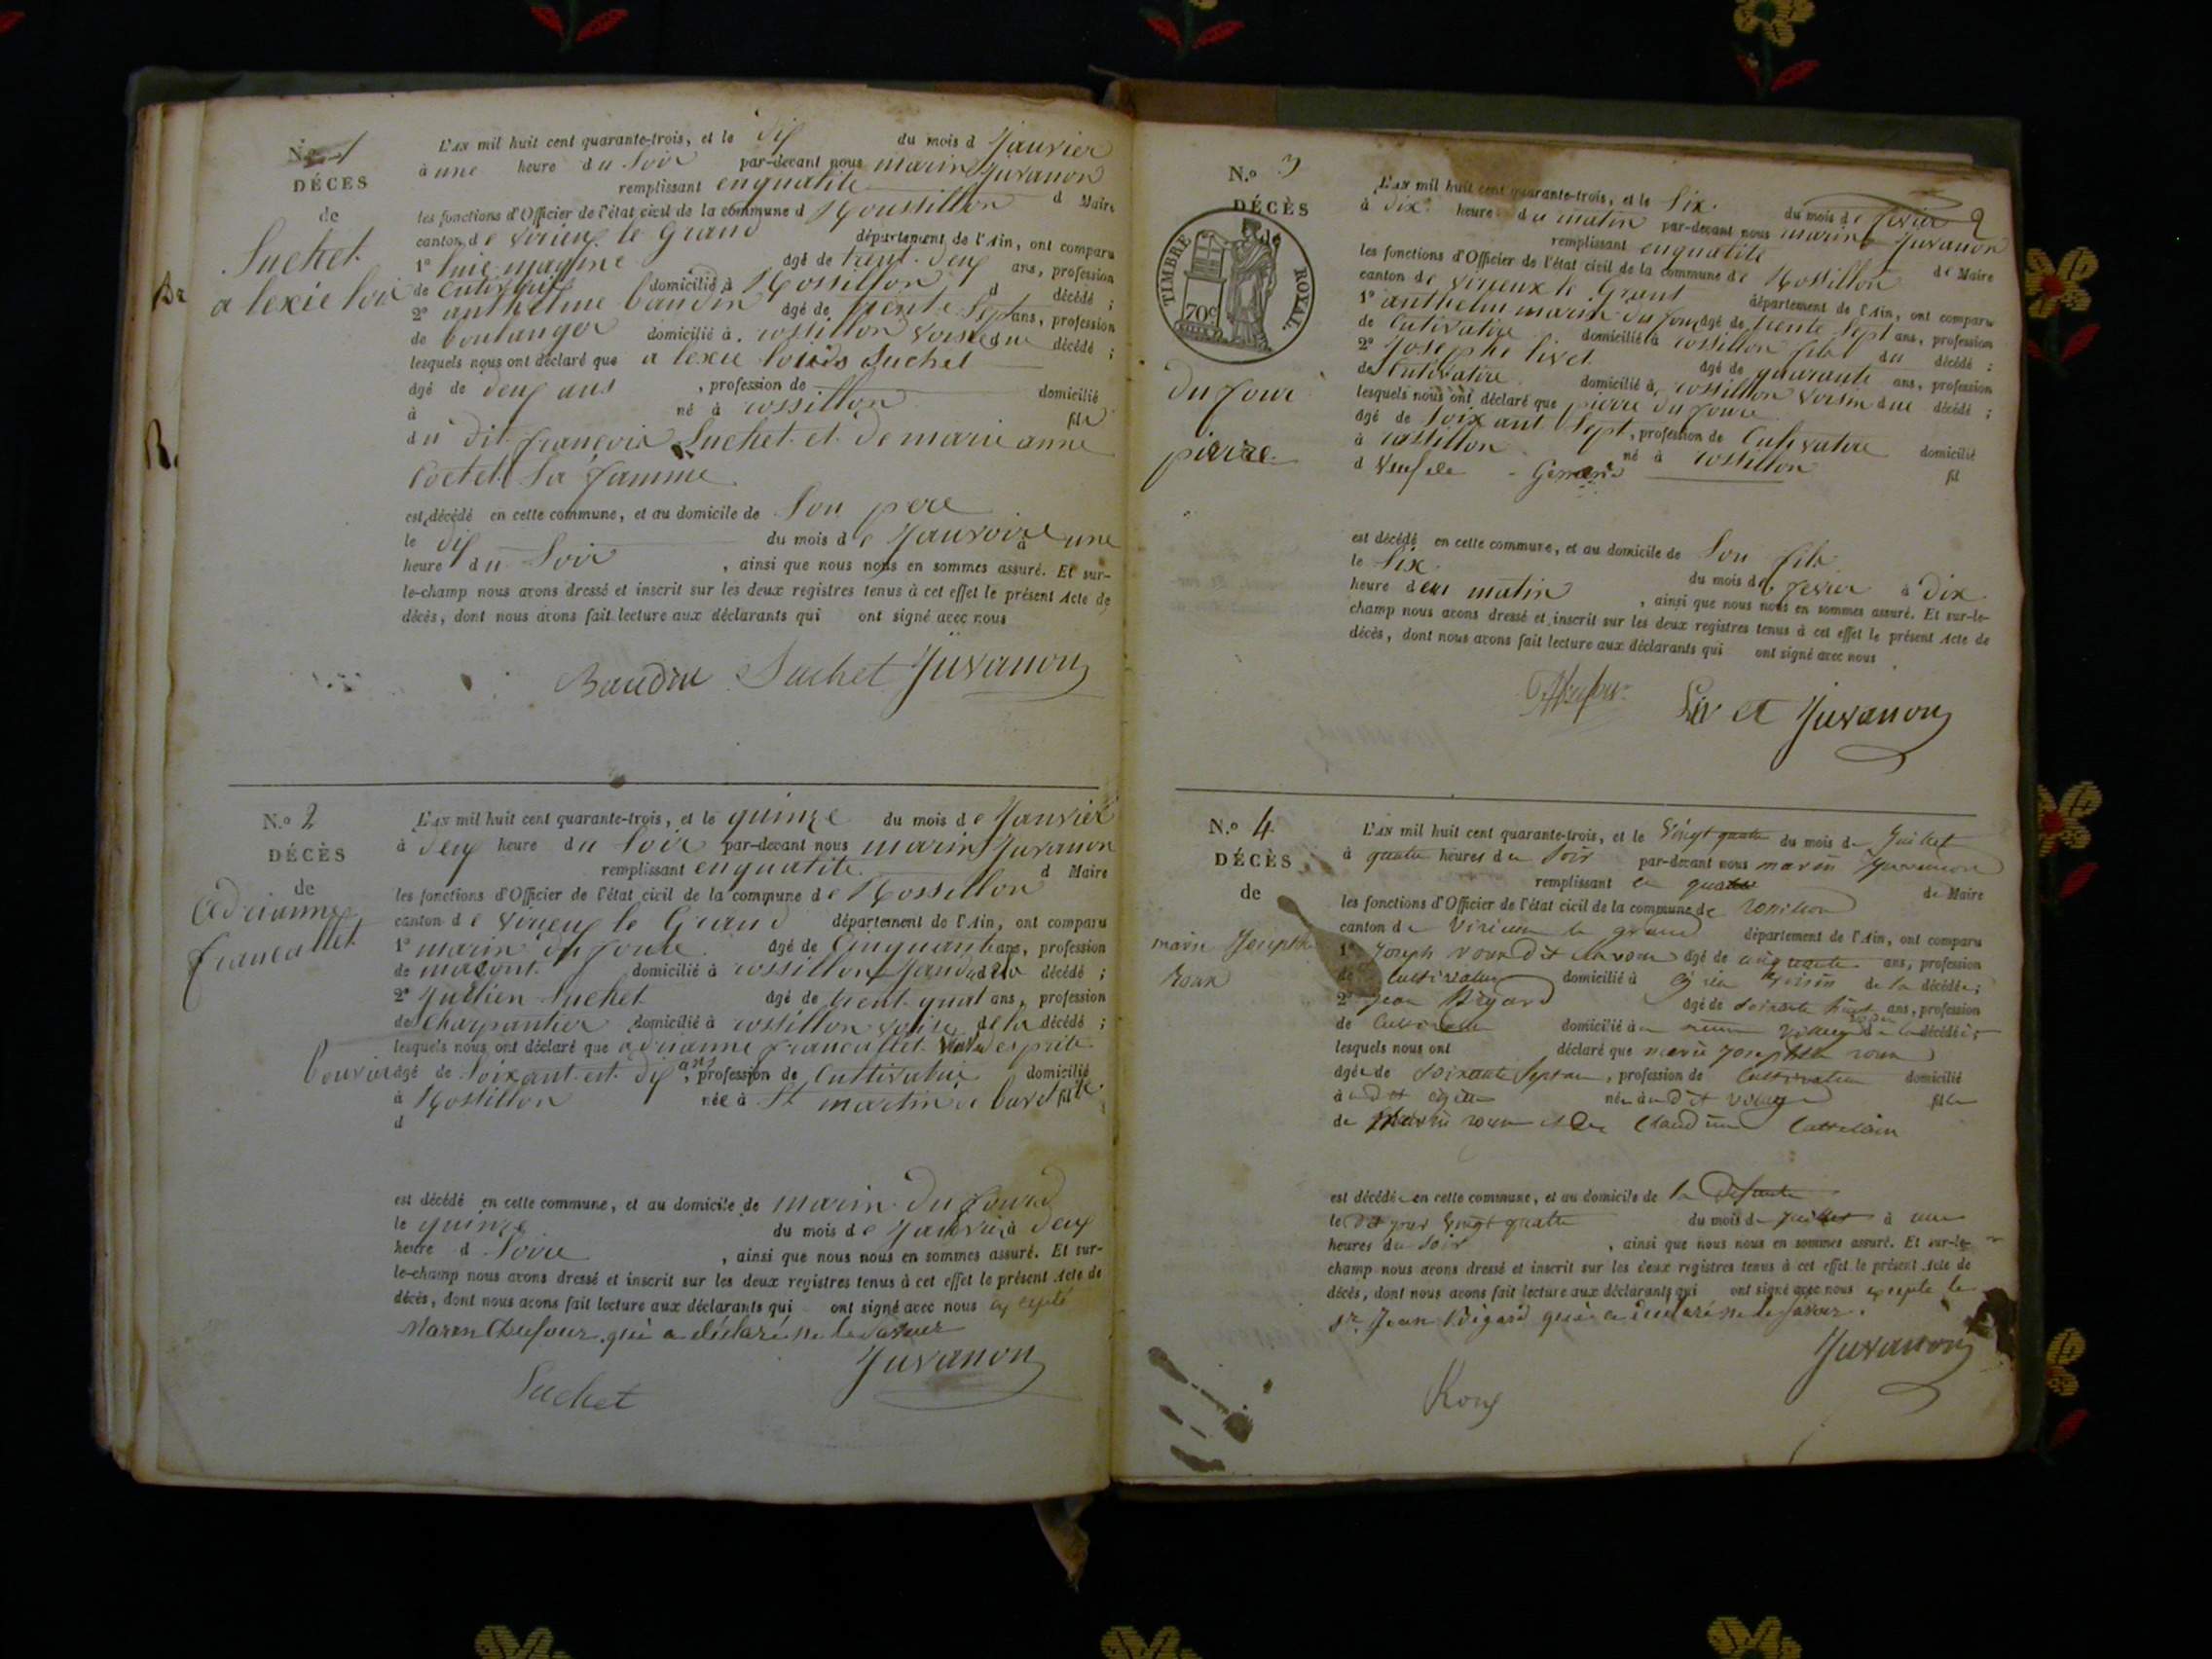 N.o 1
DÉCÈS
de
Suchet
alexie loui
L'AN mil huit cent quarante-trois, et le dix du mois d Janvier
à une heure du Soir par-devant nous marin Juvanon
remplissant enqualité d Maire
les fonctions d'Officier de l'état civil de la commune d Roussillon
canton de virieux le Grand département de l'Ain, ont comparu
1º âgé de trent deux ans, profession
de domicilié à Rossillon d décédé ;
2º anthelme baudin âgé de trente Sept ans, profession
de boulanger domicilié à rossillon voisin du décédé ;
lesquels nous ont déclaré que alexie louis Suchet
âgé de deux ans , profession de domicilié
à né à rossillon fils
du dit francois Suchet et de marie anne
Coctet Sa famme
est décédé en cette commune, et au domicile de Son pere
le dix du mois de Janvoire à une
heure du Soir , ainsi que nous nous en sommes assuré. Et sur-
le-champ nous avons dressé et inscrit sur les deux registres tenus à cet effet le présent Acte de
décès, dont nous avons fait lecture aux déclarants qui ont signé avec nous
Baudin Suchet Juvanon
N.o 2
DÉCÈS
de
adrianne
francallet
L'AN mil huit cent quarante-trois, et le quinze du mois de Janvier
à deux heure du Soir par-devant nous marin Juvanon
remplissant enqualité d Maire
les fonctions d'Officier de l'état civil de la commune de Rossillon
canton de virieux le Grand département de l'Ain, ont comparu
1º marin du foure âgé de Cinquante ans, profession
de maçont domicilié à rossillon décédé ;
2º Jullien Suchet âgé de trent quat ans, profession
de Charpantier domicilié à rossillon voisin de la décédé ;
lesquels nous ont déclaré que adrianne francallet esprit
bouvier âgé de Soixant et dix ans, profession de Cultivatrie domicilié
à Rossillon née à St martin de bavel fille
d
est décédé en cette commune, et au domicile de marin du fourd
le quinze du mois de Janvrie à deux
heure d Soire , ainsi que nous nous en sommes assuré. Et sur-
le-champ nous avons dressé et inscrit sur les deux registres tenus à cet effet le présent Acte de
décès, dont nous avons fait lecture aux déclarants qui ont signé avec nous excepté
Marin Dufour qui a déclaré ne le savoir
Juvanon
Suchet
N.o 3
DÉCÈS
de
TIMBRE ROYAL.
70c
du four
pierre
L'AN mil huit cent quarante-trois, et le Six du mois de fevrier 2
à dix heure du matin par-devant nous marin Juvanon
remplissant enqualité de Maire
les fonctions d'Officier de l'état civil de la commune de Rossillon
canton de virieux le Grand département de l'Ain, ont comparu
1º anthelm marin du four âgé de trente Sept ans, profession
de Cultivatire domicilié à rossillon fils du décédé ;
2º Josephe livet âgé de quarante ans, profession
de Cultivatire domicilié à rossillon voisin due décédé ;
lesquels nous ont déclaré que pierre du foure
âgé de Soixant Sept, profession de Cultivatire domicilié
à rossillon né à rossillon fil
d
est décédé en cette commune, et au domicile de Son fils
le Six du mois de fevrier à dix
heure deu matin , ainsi que nous nous en sommes assuré. Et sur-le-
champ nous avons dressé et inscrit sur les deux registres tenus à cet effet le présent Acte de
décès, dont nous avons fait lecture aux déclarants qui ont signé avec nous
Livet Juvanon
N.o 4
DÉCÈS
de
marie Josephte
Roux
L'AN mil huit cent quarante-trois, et le Vingt quatre du mois de Juillet
à quatre heures du Soir par-devant nous marin Juvanon
remplissant de Maire
les fonctions d'Officier de l'état civil de la commune de rossillon
canton de Virieu le grand département de l'Ain, ont comparu
1º Joseph roux dit âgé de cinquante ans, profession
de Cultivateur domicilié à de la décédée ;
2º Jean Bigard âgé de Soixante huit ans, profession
de Cultivateur domicilié à décédée ;
lesquels nous ont déclaré que marie Josephte roux
âgée de Soixante Sept ans , profession de Cultivatrice domicilié
à née audit village fille
de roux et de Claudine
est décédée en cette commune, et au domicile de la Défunte
le dit jour Vingt quatre du mois de Juillet à une
heures du Soir , ainsi que nous nous en sommes assuré. Et sur-le-
champ nous avons dressé et inscrit sur les deux registres tenus à cet effet le présent Acte de
décès, dont nous avons fait lecture aux déclarants qui ont signé avec nous excepté le
sr. Jean Bigard qui a déclaré ne le savoir.
Juvanon
Roux